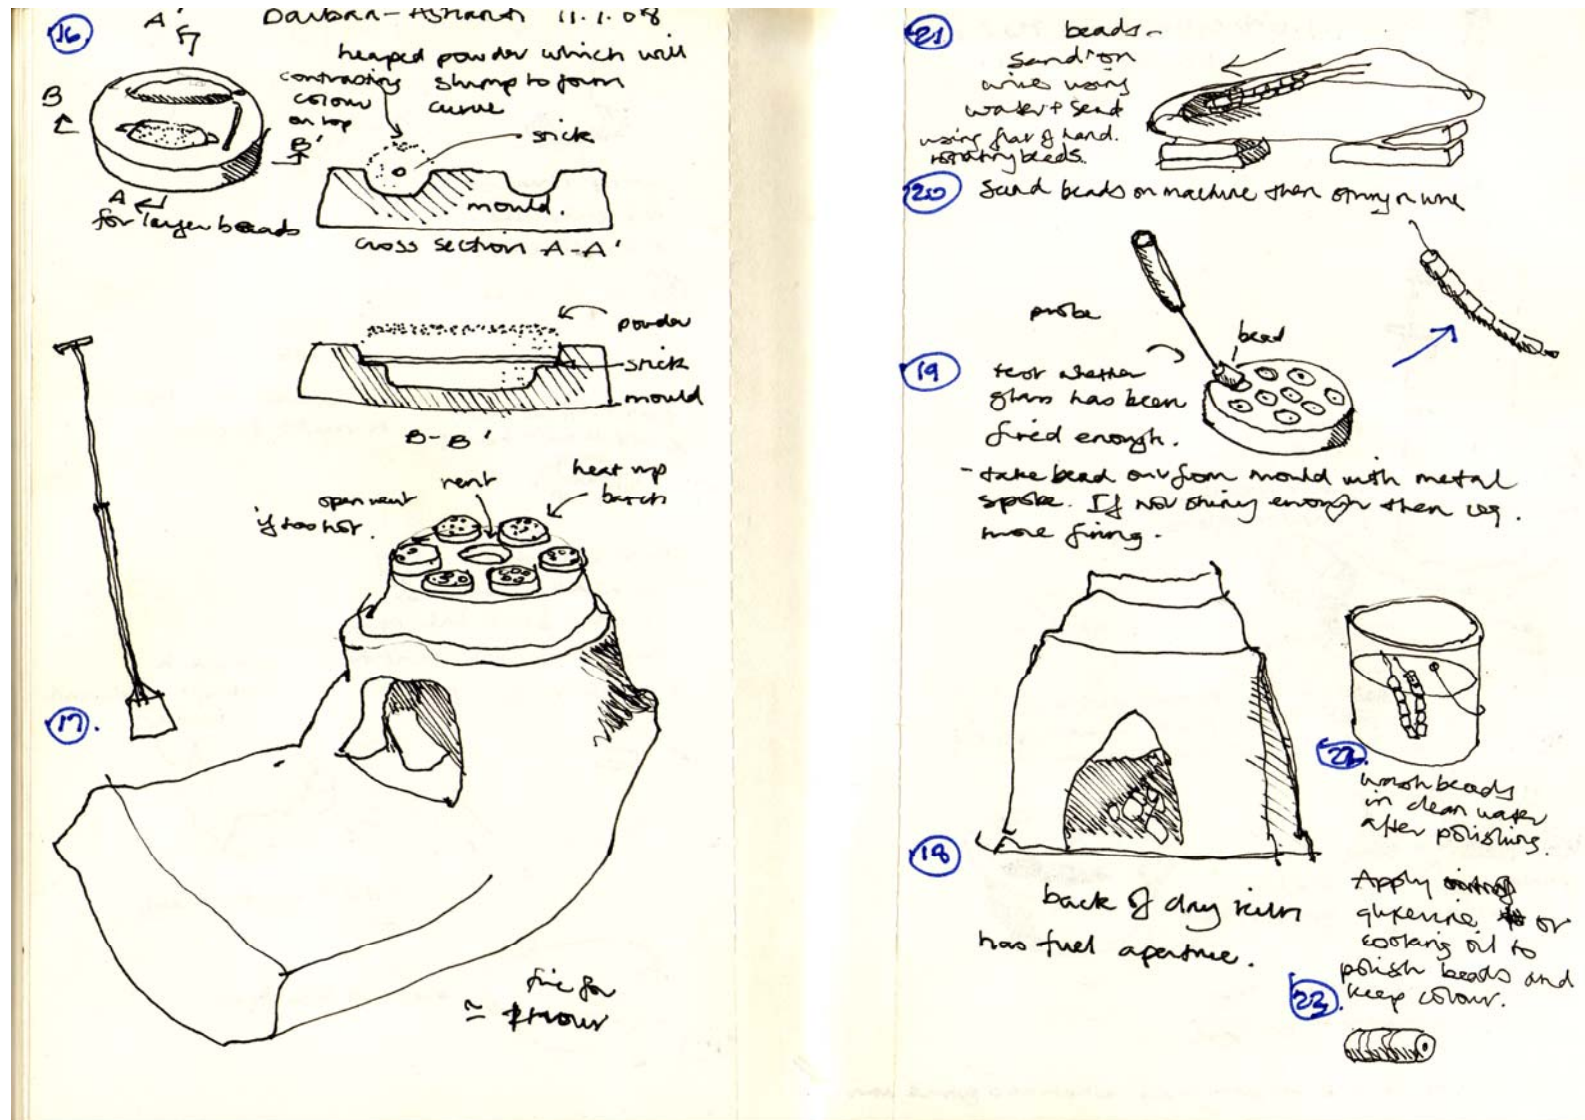 16
Darban - Ashanti 11.1.08
A'
heaped powder which will
slump to form
curve
contrasting
colour
on top
B
B'
A
for larger beads
stick
mould.
cross section A-A'
powder
stick
mould
B-B'
heat up
batch
vent
open vent
if too hot.
17.
fire for
≃ 1 hour
21
beads -
sand on
wires using
water & sand
using flat of hand.
rotating beads.
20
Sand beads on machine then string on wire
probe
bead
19
test whether
glass has been
fired enough.
- take bead out from mould with metal
spoke. If not shiny enough then req.
more firing.
18
back of dry kiln
has fuel aperture.
22.
wash beads
in clean water
after polishing.
Apply
glycerine or
cooking oil to
polish beads and
keep colour.
23.